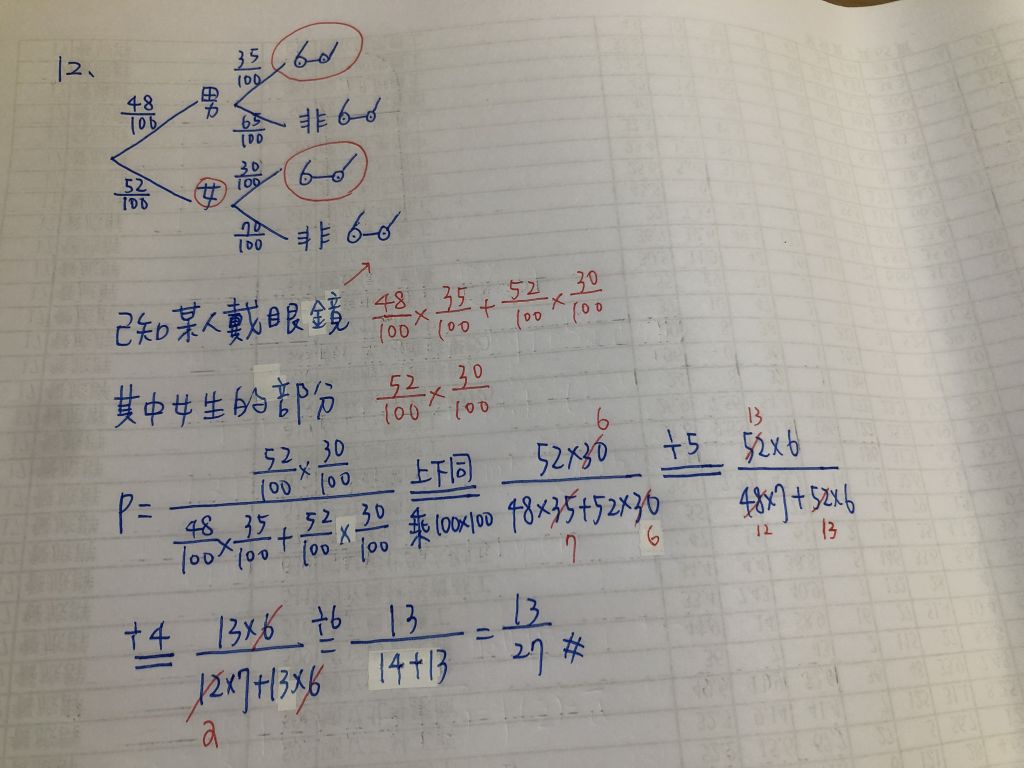 12、
48/100 男 35/100
65/100 非
52/100 女 30/100
70/100 非
已知某人戴眼鏡 48/100 × 35/100 + 52/100 × 30/100
其中女生的部分 52/100 × 30/100
P = (52/100 × 30/100) / (48/100 × 35/100 + 52/100 × 30/100) 上下同乘100×100 = (52×30) / (48×35+52×30) 6 7 6 ÷5 = (52×6) / (48×7+52×6) 13 12 13
÷4 = (13×6) / (12×7+13×6) 2 ÷6 = 13 / (14+13) = 13/27 #